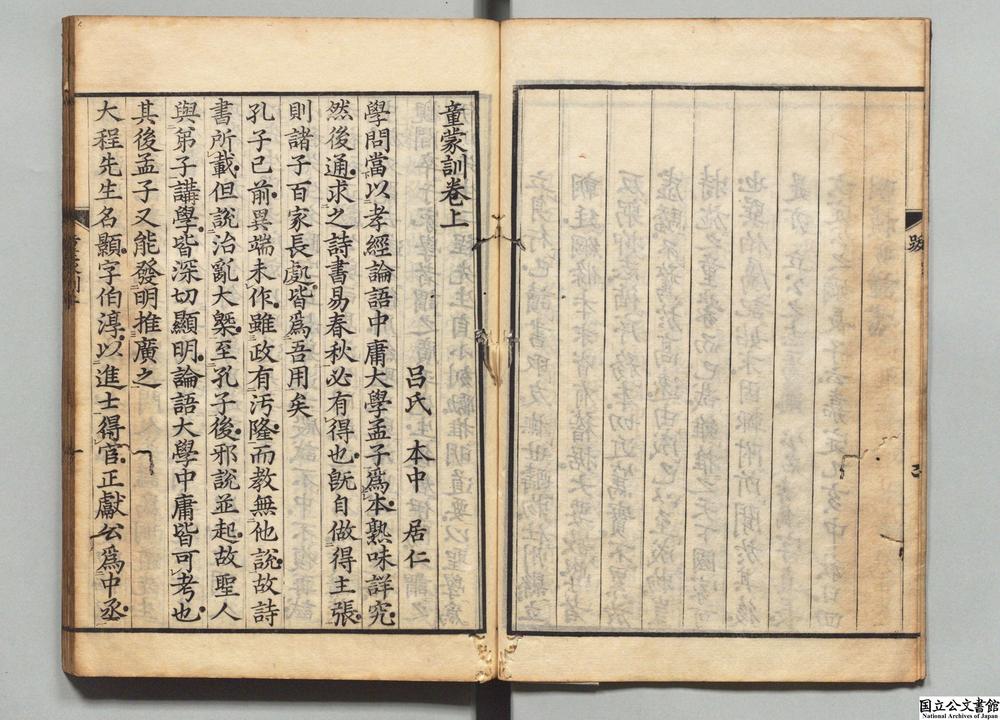 跋
童蒙訓卷上
呂氏 本中 居仁
學問當以孝經論語中庸大學孟子爲本熟味詳究
然後通求之詩書易春秋必有得也既自做得主張
則諸子百家長處皆爲吾用矣
孔子已前異端未作雖政有汚隆而教無他説故詩
書所載但說治亂大槩至孔子後邪說並起故聖人
與弟子講學皆深切顯明論語大學中庸皆可考也
其後孟子又能發明推廣之
大程先生名顥字伯淳以進士得官正獻公爲中丞
国立公文書館
National Archives of Japan